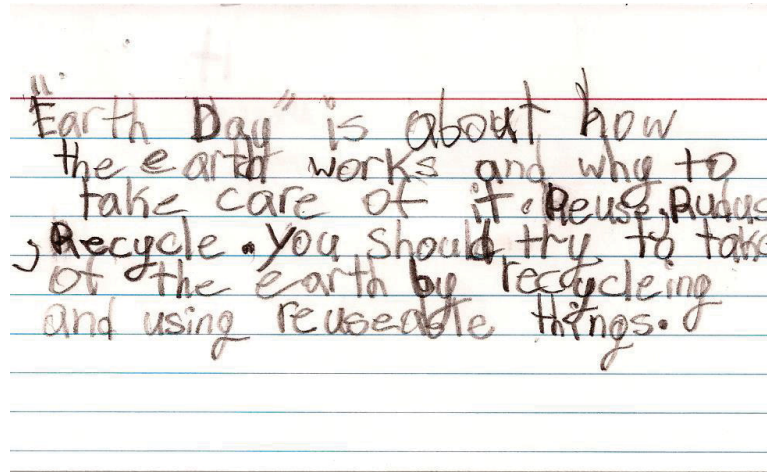 "Earth Day" is about how
the earth works and why to
take care of it. Reuse, Rudus
, Recycle. You should try to take
of the earth by recycleing
and using reuseable things.